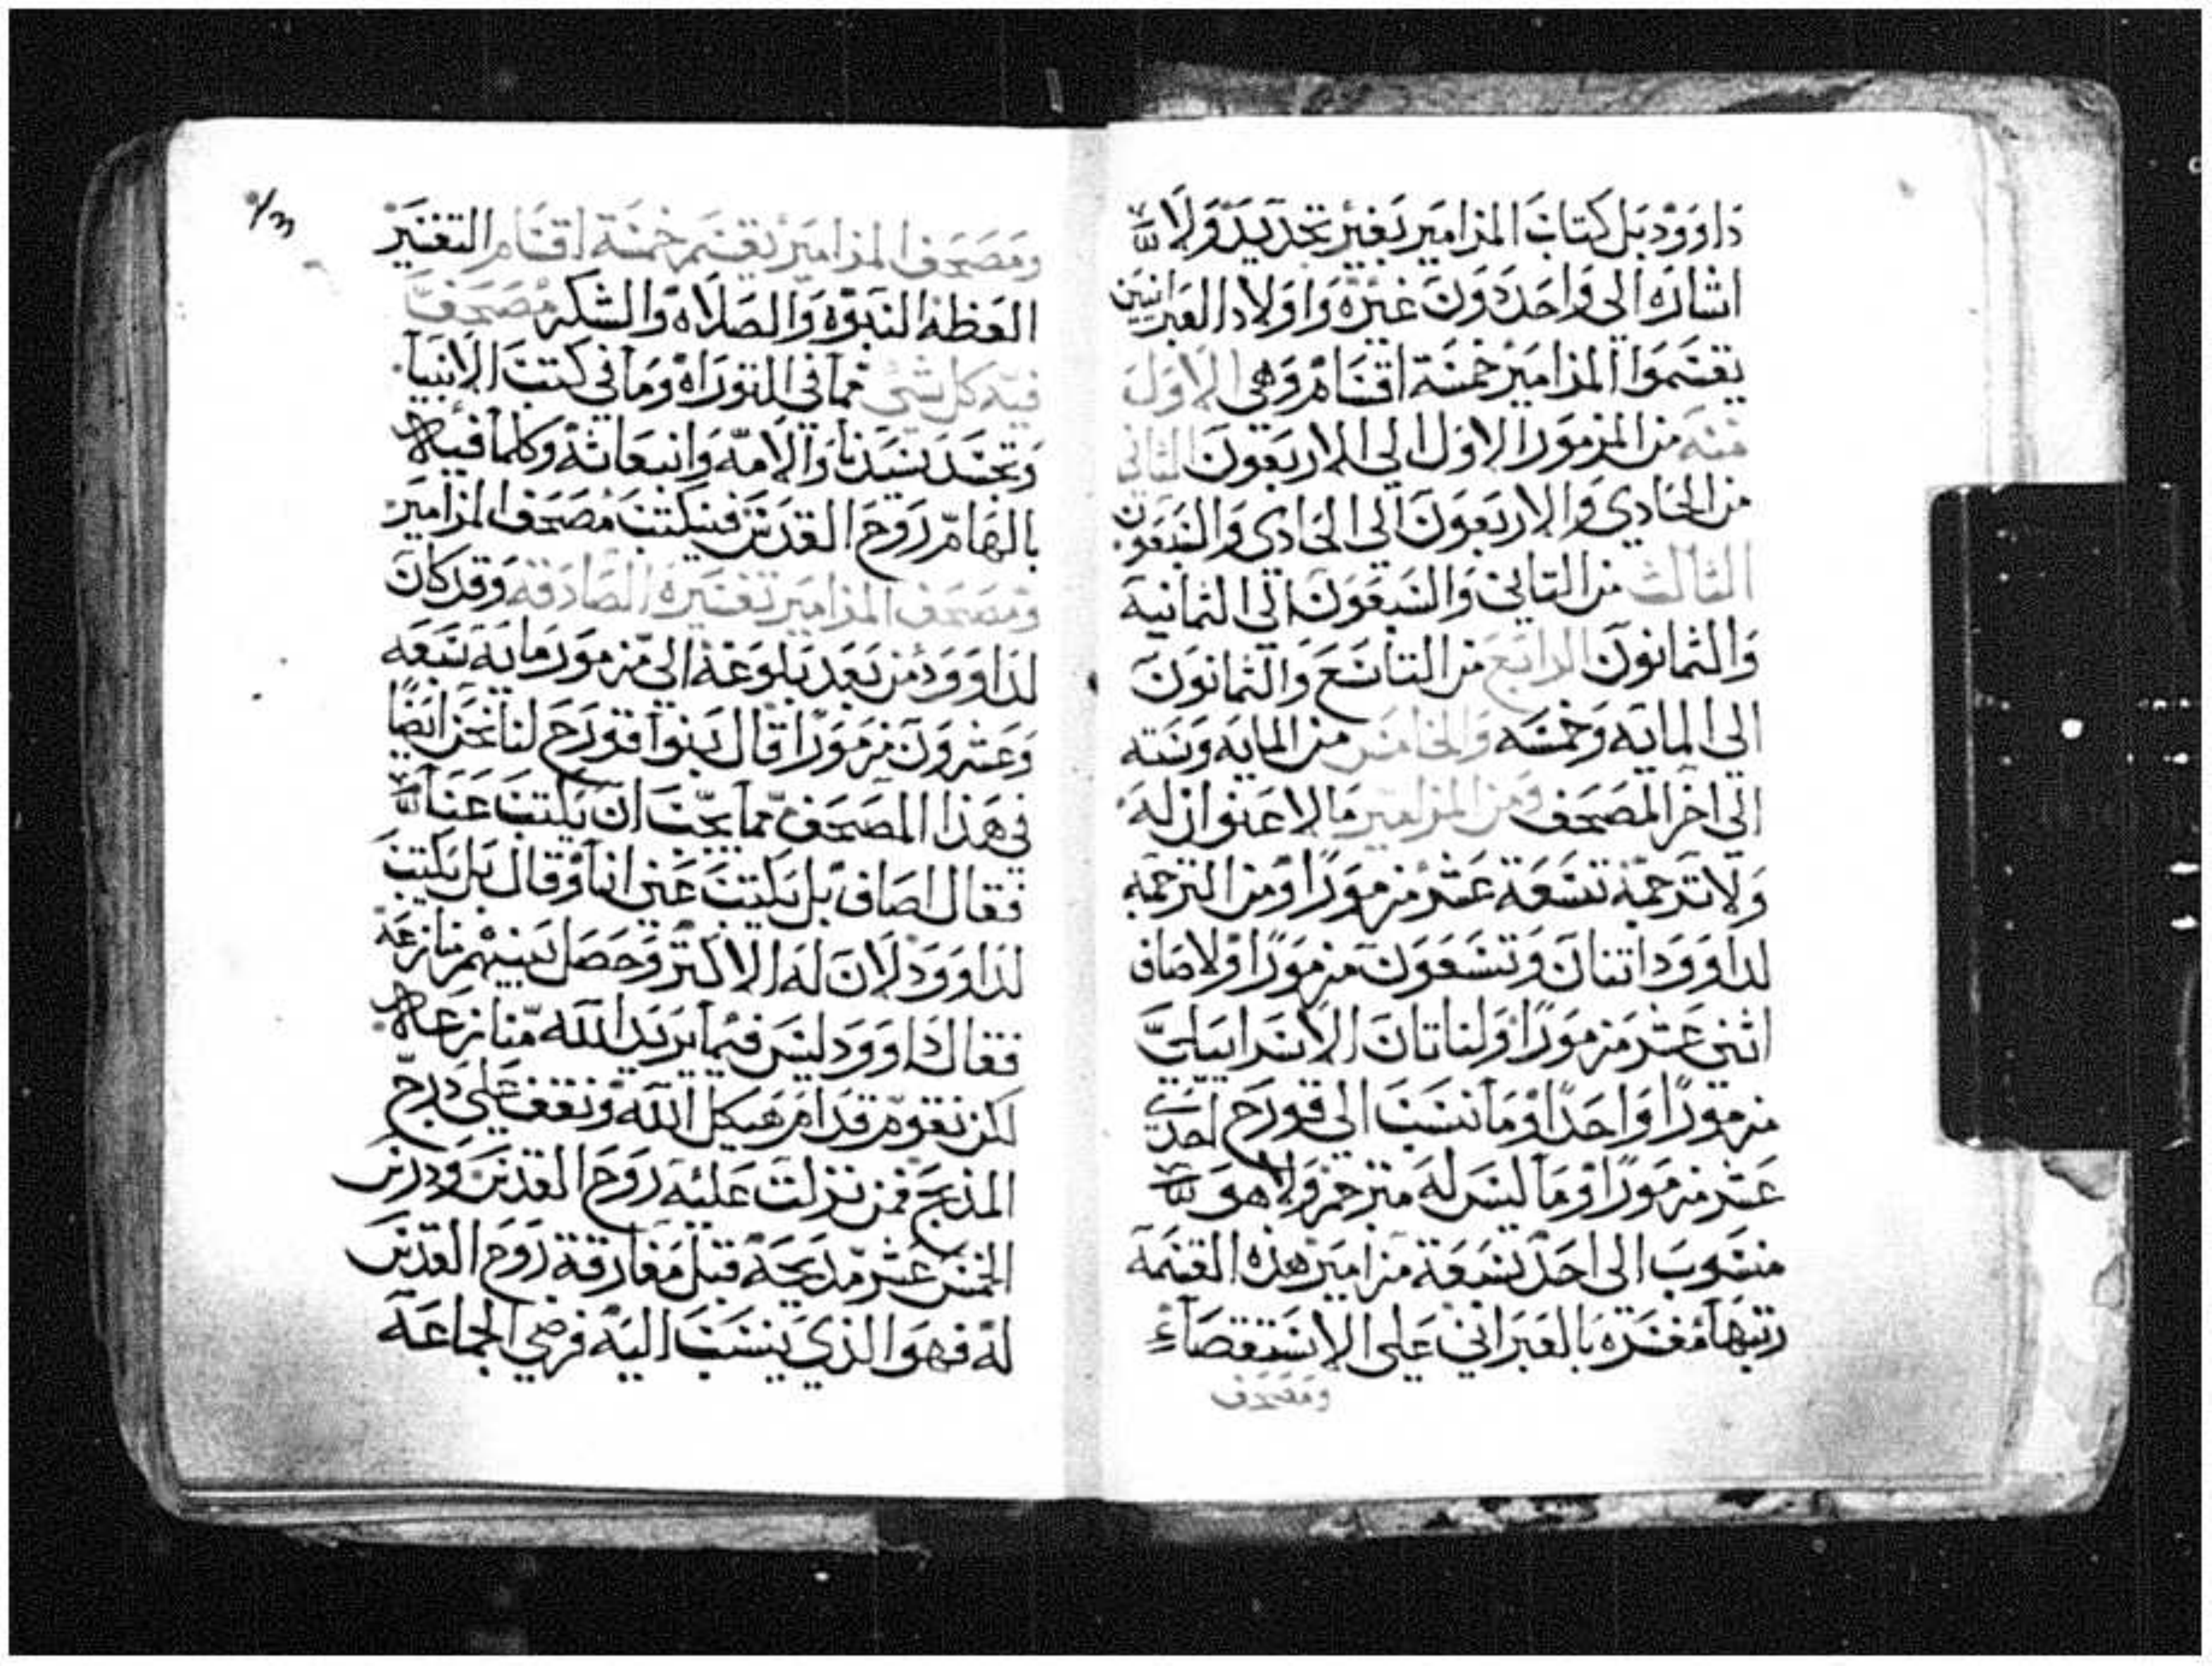 داوود بل كتاب المزامير بغير تحديد ولا
اشاره الي واحد دون غيره واولاد العبرانيين
يقسموا المزامير خمسة اقسام وهي الاول
منه من المزمور الاول الي الاربعون الثاني
من الحادي والاربعون الي الحادي والسبعون
الثالث من التاني والسبعون الي الثمانية
والثمانون الرابع من التاسع والثمانون
الي المايه وخمسه والخامس من المايه وسته
الي اخر المصحف ومن المزامير ما لا عنوان له
ولا ترجمة تسعة عشر مزمورا ومن الترجمة
لداوود اتنان وتسعون مزمورا ولاصاف
اثني عشر مزمورا ولناتان الاسراييلي
مزمورا واحدا وما نسب الي قورح احدي
عشر مزمورا وما ليس له مترجم ولا هو
منسوب الي احد تسعة مزامير هذه القسمة
رتبها مفسره بالعبراني علي الاستقصاء
ومصحف
ومصحف المزامير يقسم خمسة اقسام التفسير
العظه النبوه والصلاه والشكر مصحف
فيه كل شي مما في التوراه وما في كتب الانبيا
وتجسد سيدنا والامه وانبعاثه وكلما فيه
بالهام روح القدس فسكتب مصحف المزامير
ومصحف المزامير تفسيره الصادقه وقد كان
لداوود من بعد بلوغه الي مزمور مايه سبعه
وعشرون مزمورا قال بنوا قورح لنا نحن ايضا
في هذا المصحف مما يجب ان يكتب عنا
فقال اصاف بل يكتب عني انا وقال بل يكتب
لداوود لان له الاكتر وحصل بينهم منازعة
فقال داوود ليس فيما يريد الله منازعه
لكن نقوم قدام هيكل الله ونقف علي درج
المذبح فمن نزلت عليه روح القدس ودرس
الخمس عشر مديحة قبل مفارقة روح القدس
له فهو الذي ينسب اليه فرضي الجماعة